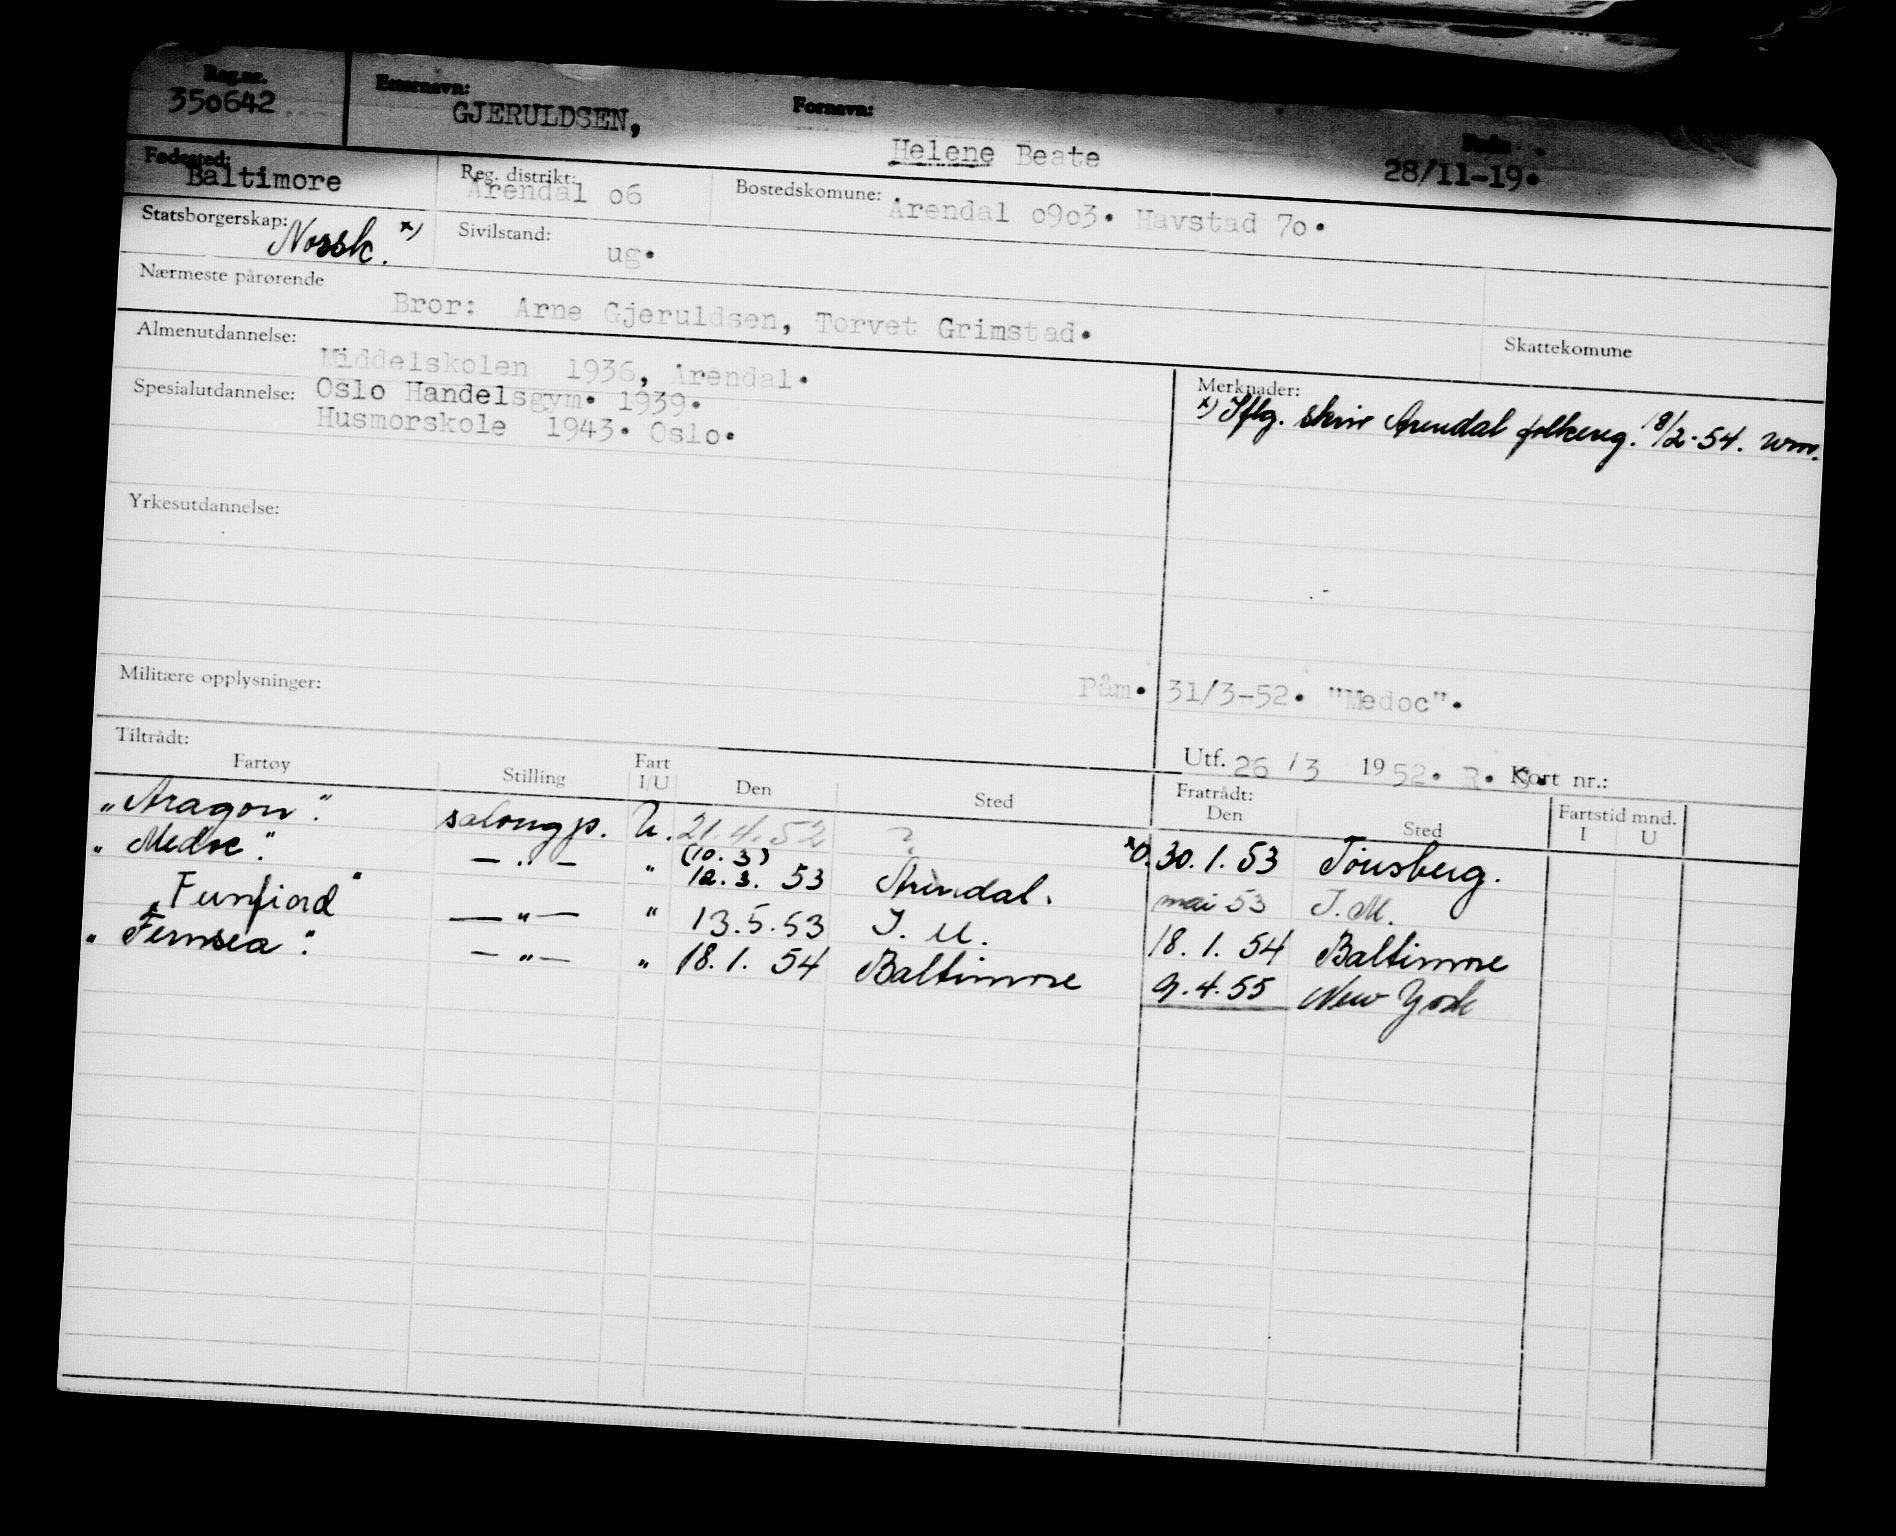 Reg.nr. Etternavn: Fornavn: Født
350642 GJERULDSEN, Helene Beate 28/11-19.
Fødested: Reg. distrikt: Bostedskomune:
Baltimore Arendal 06 Arendal 0903. Havstad 70.
Statsborgerskap: Norsk. x) Sivilstand: ug.
Nærmeste pårørende
Bror: Arne Gjeruldsen, Torvet Grimstad.
Skattekomune
Almenutdannelse: Middelskolen 1936, Arendal.
Spesialutdannelse: Oslo Handelsgym. 1939.
Husmorskole 1943. Oslo.
Merknader:
x) Iflg. skriv Arendal folkereg. 18/2-54. wm.
Yrkesutdannelse:
Militære opplysninger:
Påm. 31/3-52. "Medoc".
Utf. 26/3 1952. R. S. Kort nr.:
Tiltrådt: Fratrådt: Fartstid mnd.
Fartøy Stilling Fart I/U Den Sted Den Sted I U
"Aragon". salongp. U. 21.4.52 ? 30.1.53 Tønsberg.
"Medoc". — " — " (10.3) 12.3.53 Arendal. mai 53 I.M.
"Fernfiord" — " — " 13.5.53 I.M. 18.1.54 Baltimore
"Fernsea". — " — " 18.1.54 Baltimore 9.4.55 New York